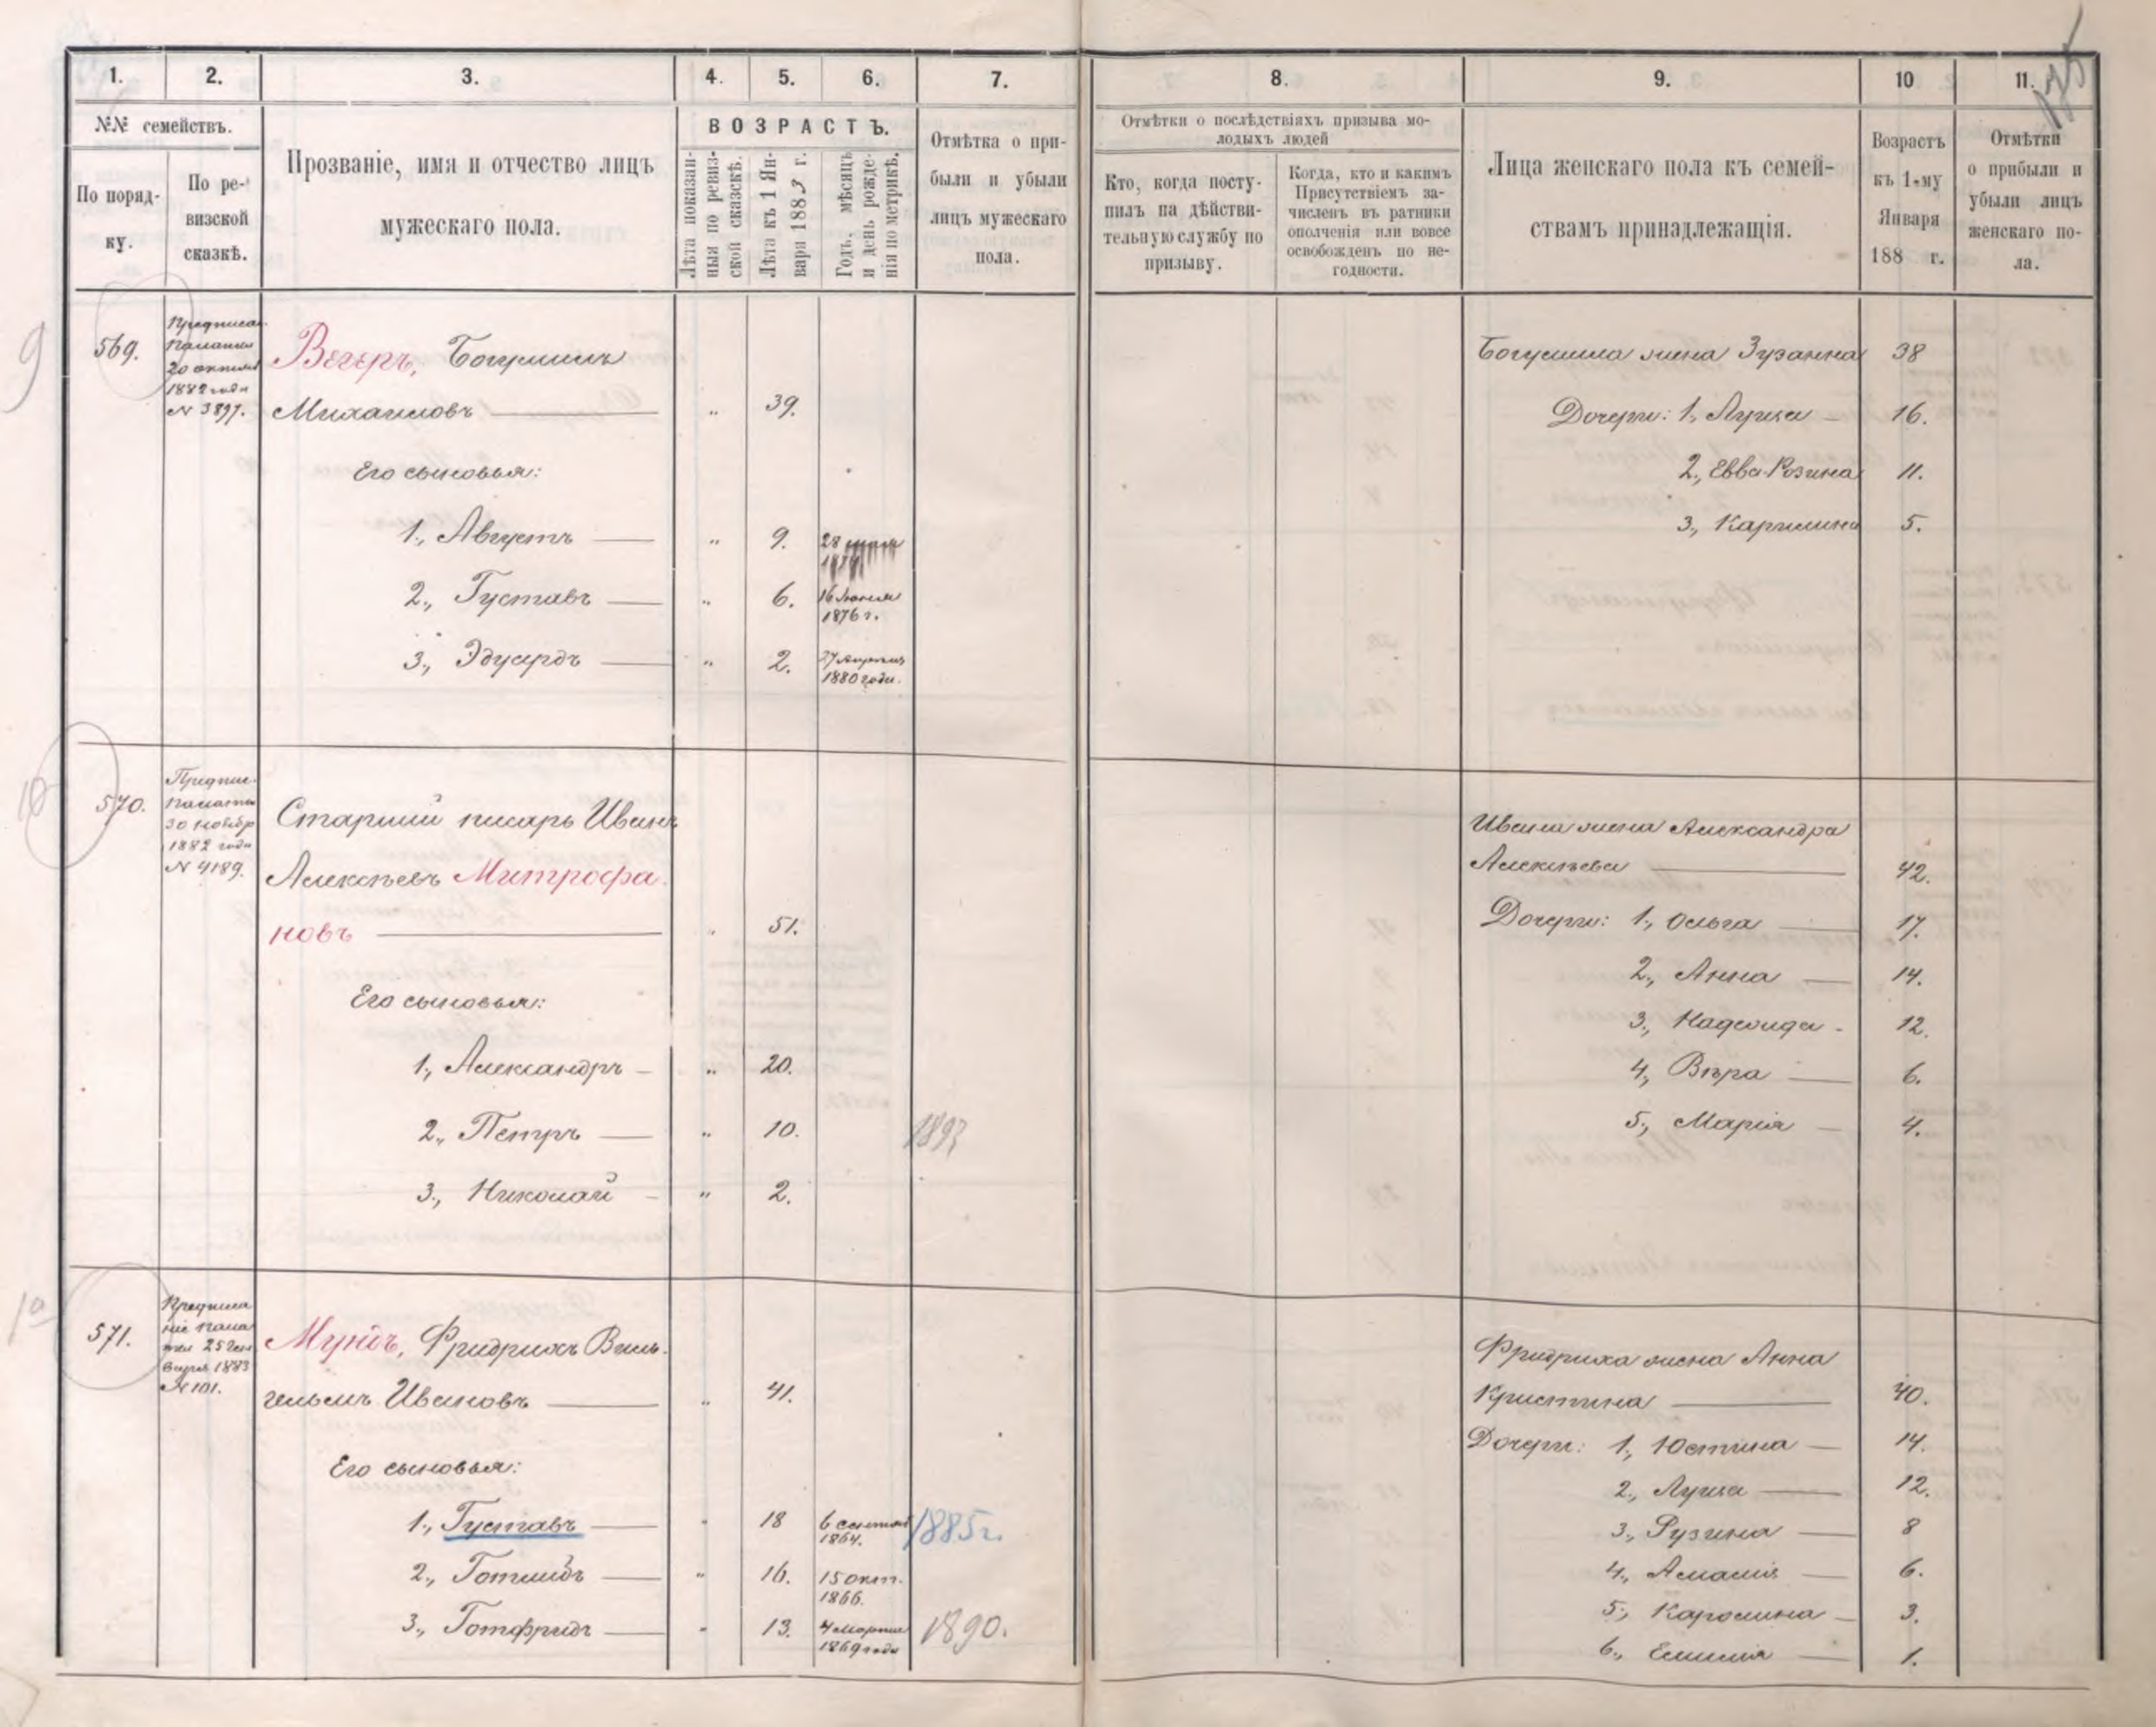 175
1. 2. 3. 4. 5. 6. 7. 8. 9. 10 11.
№№ семействъ.
По поряд-
ку.
По ре-
визской
сказкѣ.
Прозваніе, имя и отчество лицъ
мужескаго пола.
ВОЗРАСТЪ.
Лѣта показан-
ныя по ревиз-
ской сказкѣ.
Лѣта къ 1 Ян-
варя 1883 г.
Годъ, мѣсяцъ
и день рожде-
нія по метрикѣ.
Отмѣтка о при-
были и убыли
лицъ мужескаго
пола.
Отмѣтки о послѣдствіяхъ призыва мо-
лодыхъ людей
Кто, когда посту-
пилъ на дѣйстви-
тельную службу по
призыву.
Когда, кто и какимъ
Присутствіемъ за-
численъ въ ратники
ополченія или вовсе
освобожденъ по не-
годности.
Лица женскаго пола къ семей-
ствамъ принадлежащія.
Возрастъ
къ 1-му
Января
188 г.
Отмѣтки
о прибыли и
убыли лицъ
женскаго по-
ла.
9
569.
Предписа.
Палаты
20 октября
1882 года
№ 3897.
Вегеръ, Богумилъ
Михаиловъ „ 39.
Его сыновья:
1., Августъ „ 9. 28
2., Густавъ „ 6. 16 Іюля
1876 г.
3., Эдуардъ „ 2. 27 Апрѣля
1880 года.
Богумила жена Зузанна 38
Дочери: 1., Луиза 16.
2., Евва-Розина 11.
3., Каролина 5.
10
570.
Предпис.
Палаты
30 Ноябр
1882 года
№ 4189.
Старшій писарь Иванъ
Алексѣевъ Митрофа-
новъ „ 51.
Его сыновья:
1., Александръ „ 20.
2., Петръ „ 10. 1893
3., Николай „ 2.
Ивана жена Александра
Алексѣева 42.
Дочери: 1., Ольга 17.
2., Анна 14.
3., Надежда 12.
4., Вѣра 6.
5., Марія 4.
571.
Предписа
ніе Пала
ты 25 Ян
варя 1883
№ 101.
Фридрихъ Виль-
гельмъ Ивановъ „ 41.
Его сыновья:
1., Густавъ „ 18 6 сентяб
1864. 1885 г.
2., Готлибъ „ 16. 15 окт.
1866.
3., Готфридъ „ 13. 4 Марта
1869 года 1890.
Фридриха жена Анна
Кристина 40.
Дочери: 1., Юстина 14.
2., Луиза 12.
3., Рузина 8
4., Амалія 6.
5., Каролина 3.
6., Емилія 1.